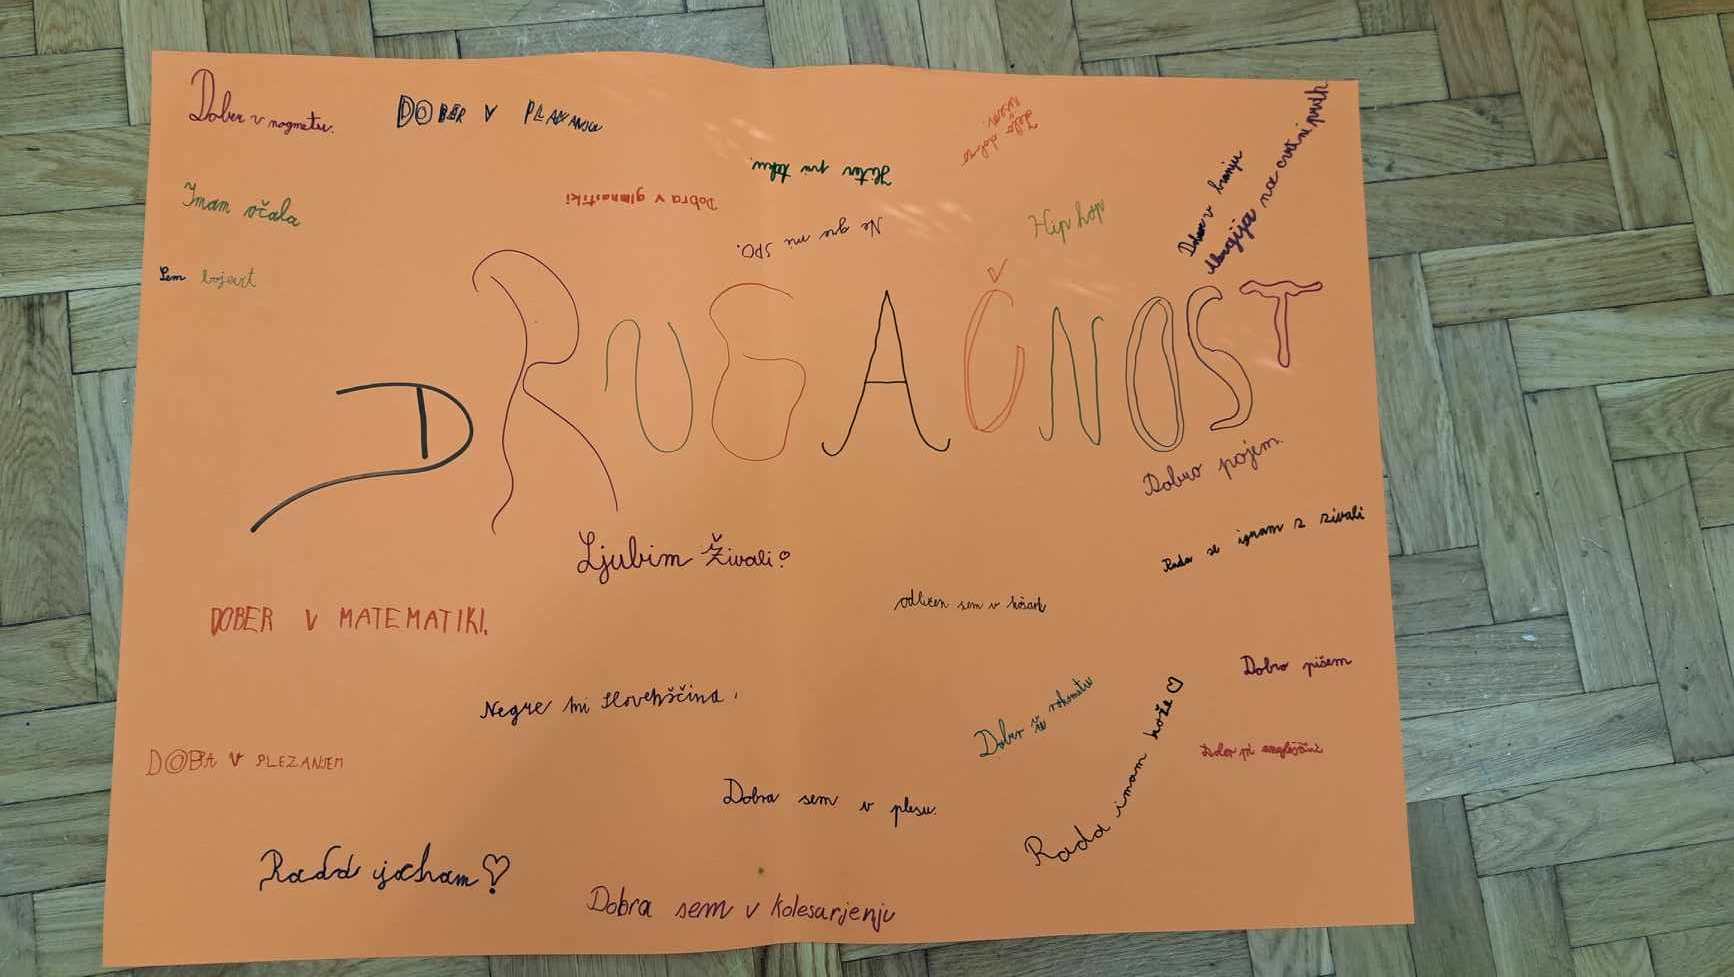 Dober v nogmetu.
DOBER V PLAVANJU
Zelo dobro
rišem.
Hiter pri teku.
Dobra v gimnastiki
Imam očala
Ne gre mi SPO.
Hip hop
Dober v branju
Alergija na cvetni prah
Sem bojevit
DRUGAČNOST
Dobro pojem.
Ljubim živali
Rada se igram z zivali
odličen sem v košarki
DOBER V MATEMATIKI.
Dobro pišem
Negre mi Slovenščina.
Dober v rokometu
Rada imam kože
Dober pi angleščini
DOBRA V PLEZANJEM
Dobra sem v plesu.
Rada jaham
Dobra sem v kolesarjenju